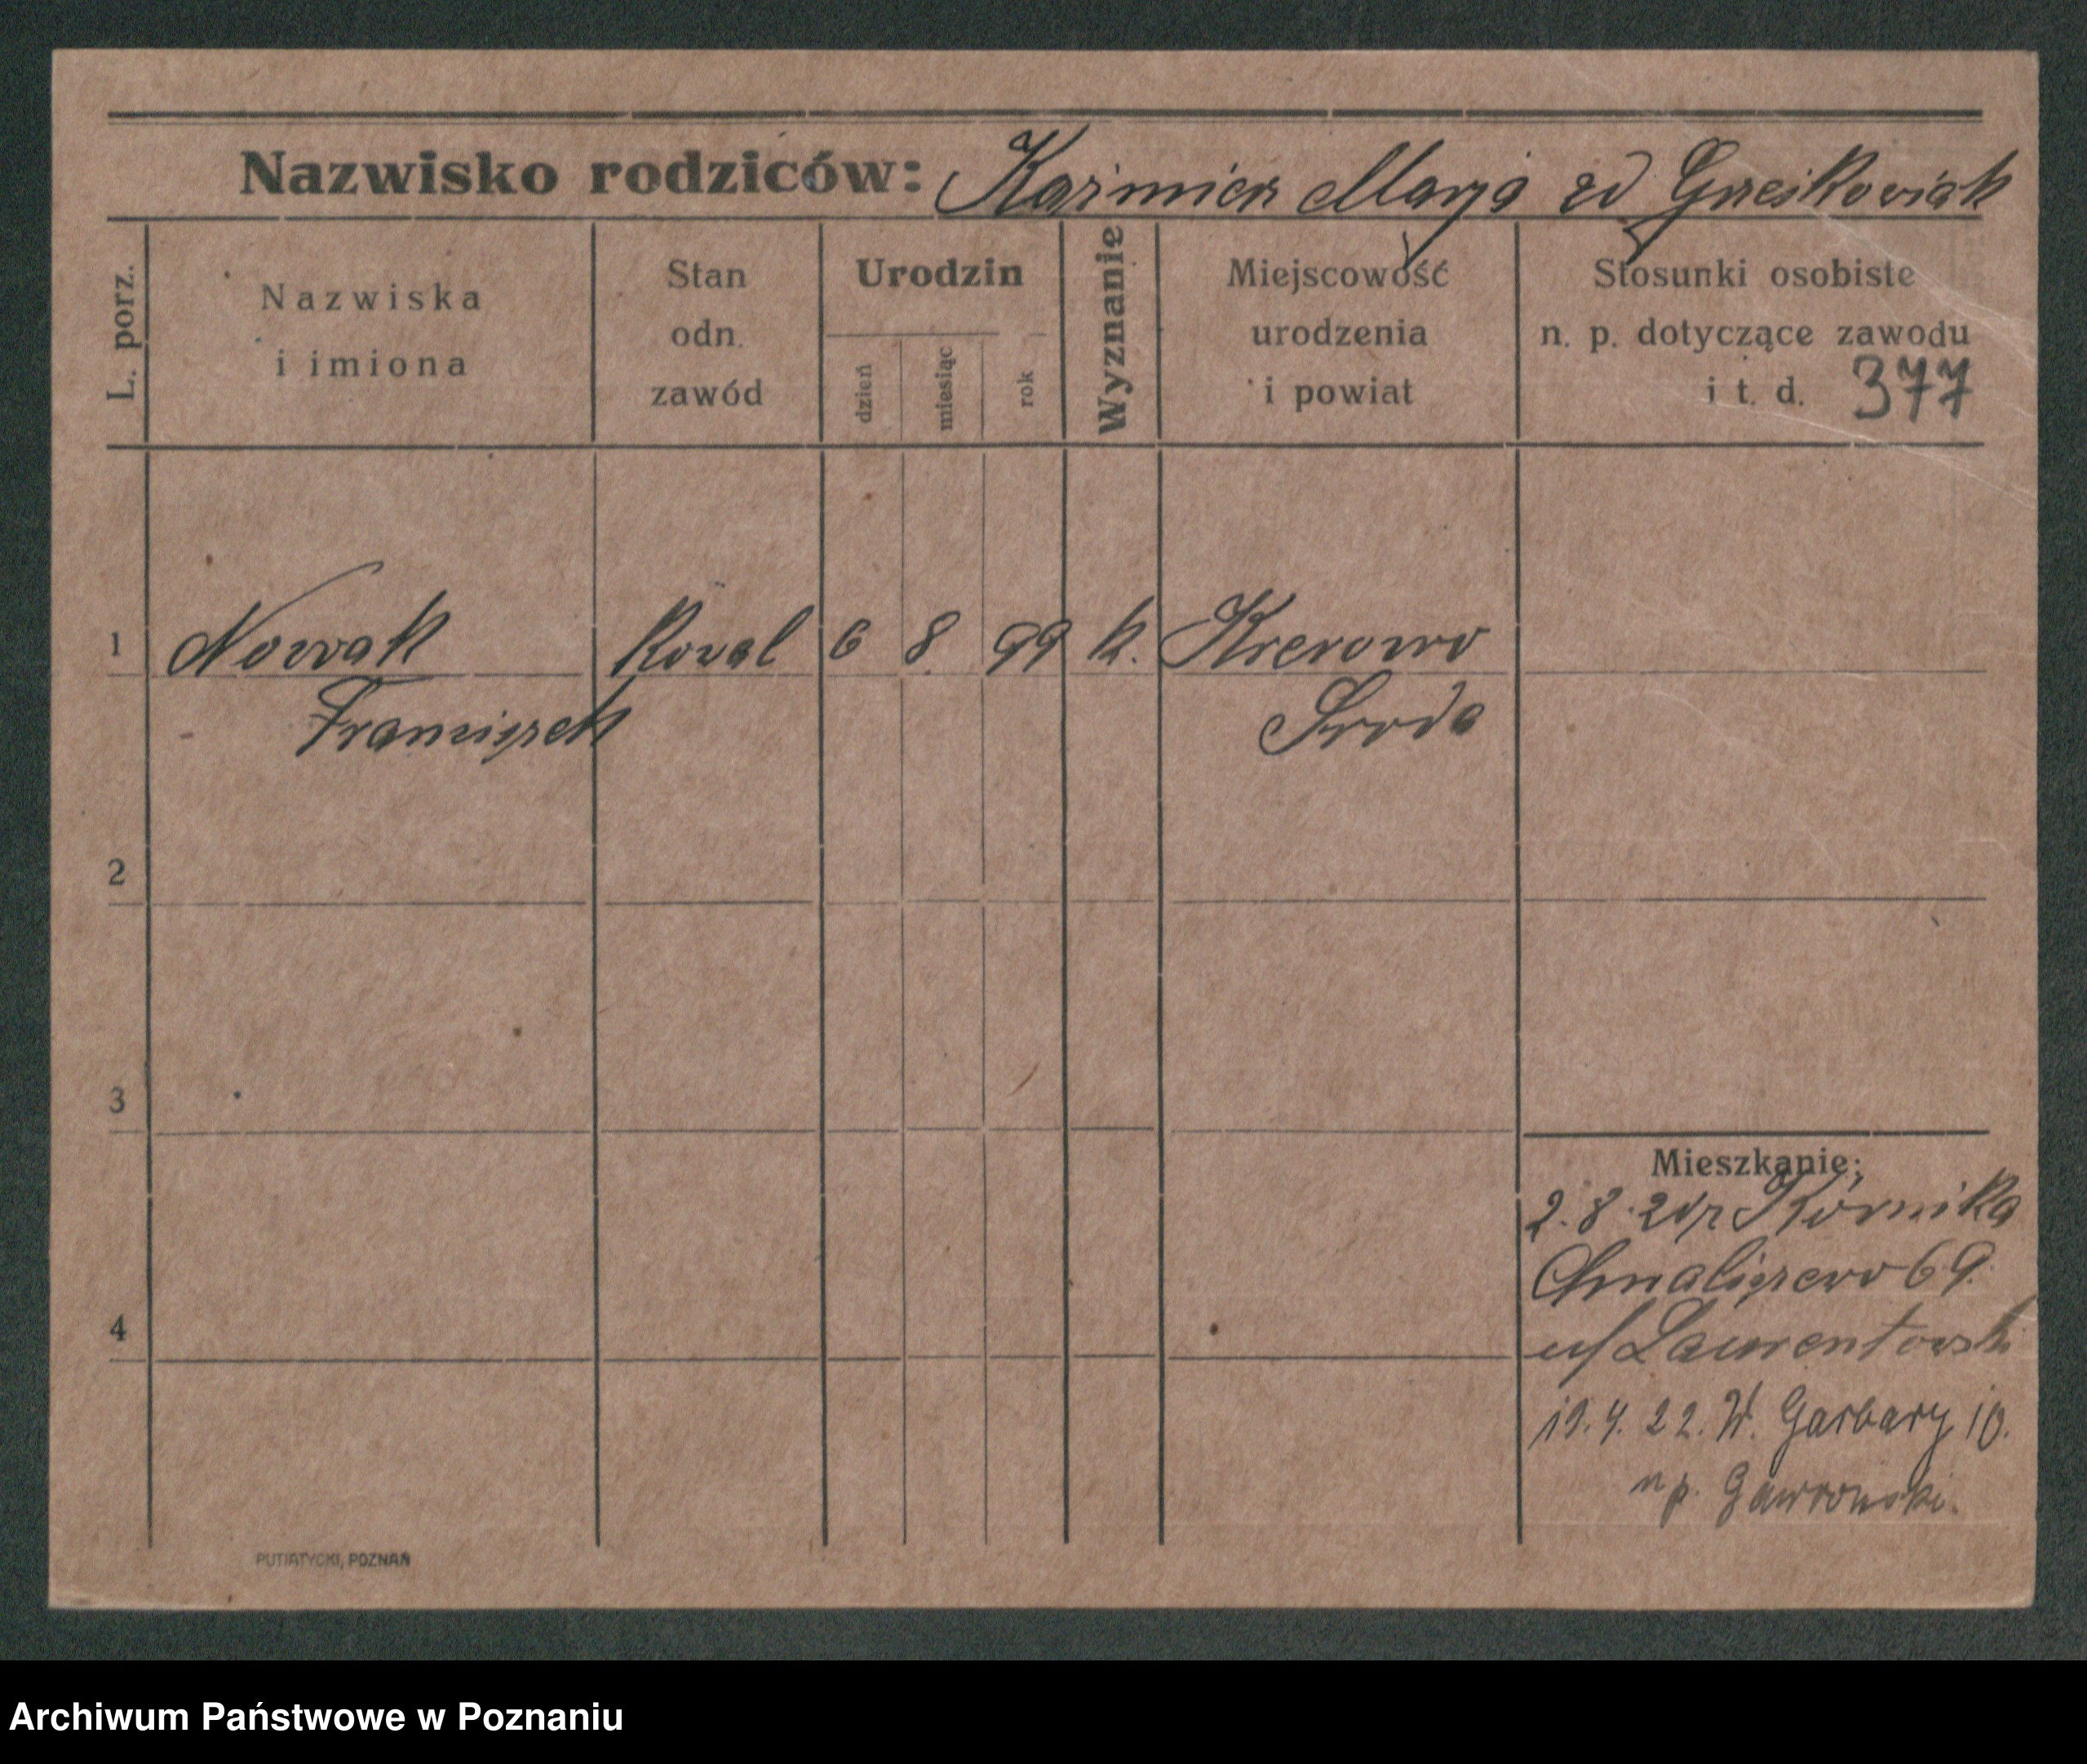 Nazwisko rodziców: Kaźmierz Marya zd Grześkowiak
L. porz.
Nazwiska
i imiona
Stan
odn.
zawód
Urodzin
dzień
miesiąc
rok
Wyznanie
Miejscowość
urodzenia
i powiat
Stosunki osobiste
n. p. dotyczące zawodu
i t. d. 377
1 Nowak Kowal 6 8 99 k. Krerowo
Franciszek Sroda
2
3
Mieszkanie:
2.8.21 z Kórnika
Chwaliszewo 69.
4
u/ Laurentowski
19.4.22. W. Garbary 10.
n p. Gawroński.
PUTIATYCKI, POZNAŃ
Archiwum Państwowe w Poznaniu